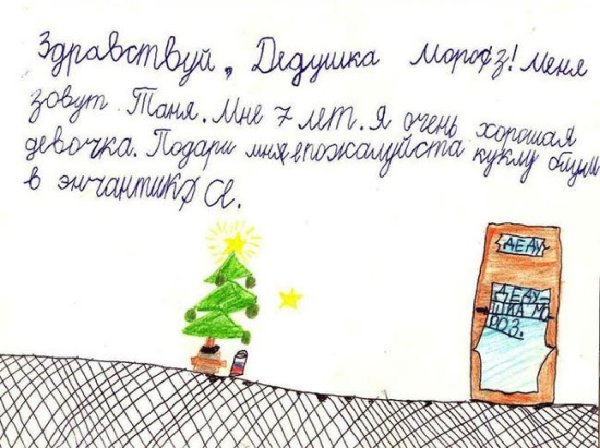 Здравствуй, Дедушка Мороз! Меня
зовут Таня. Мне 7 лет. Я очень хорошая
девочка. Подари мня пожалуйста куклу
в энчантикся.
ДЕДУ
ДЕДУ-
ШКА МО-
РОЗ.